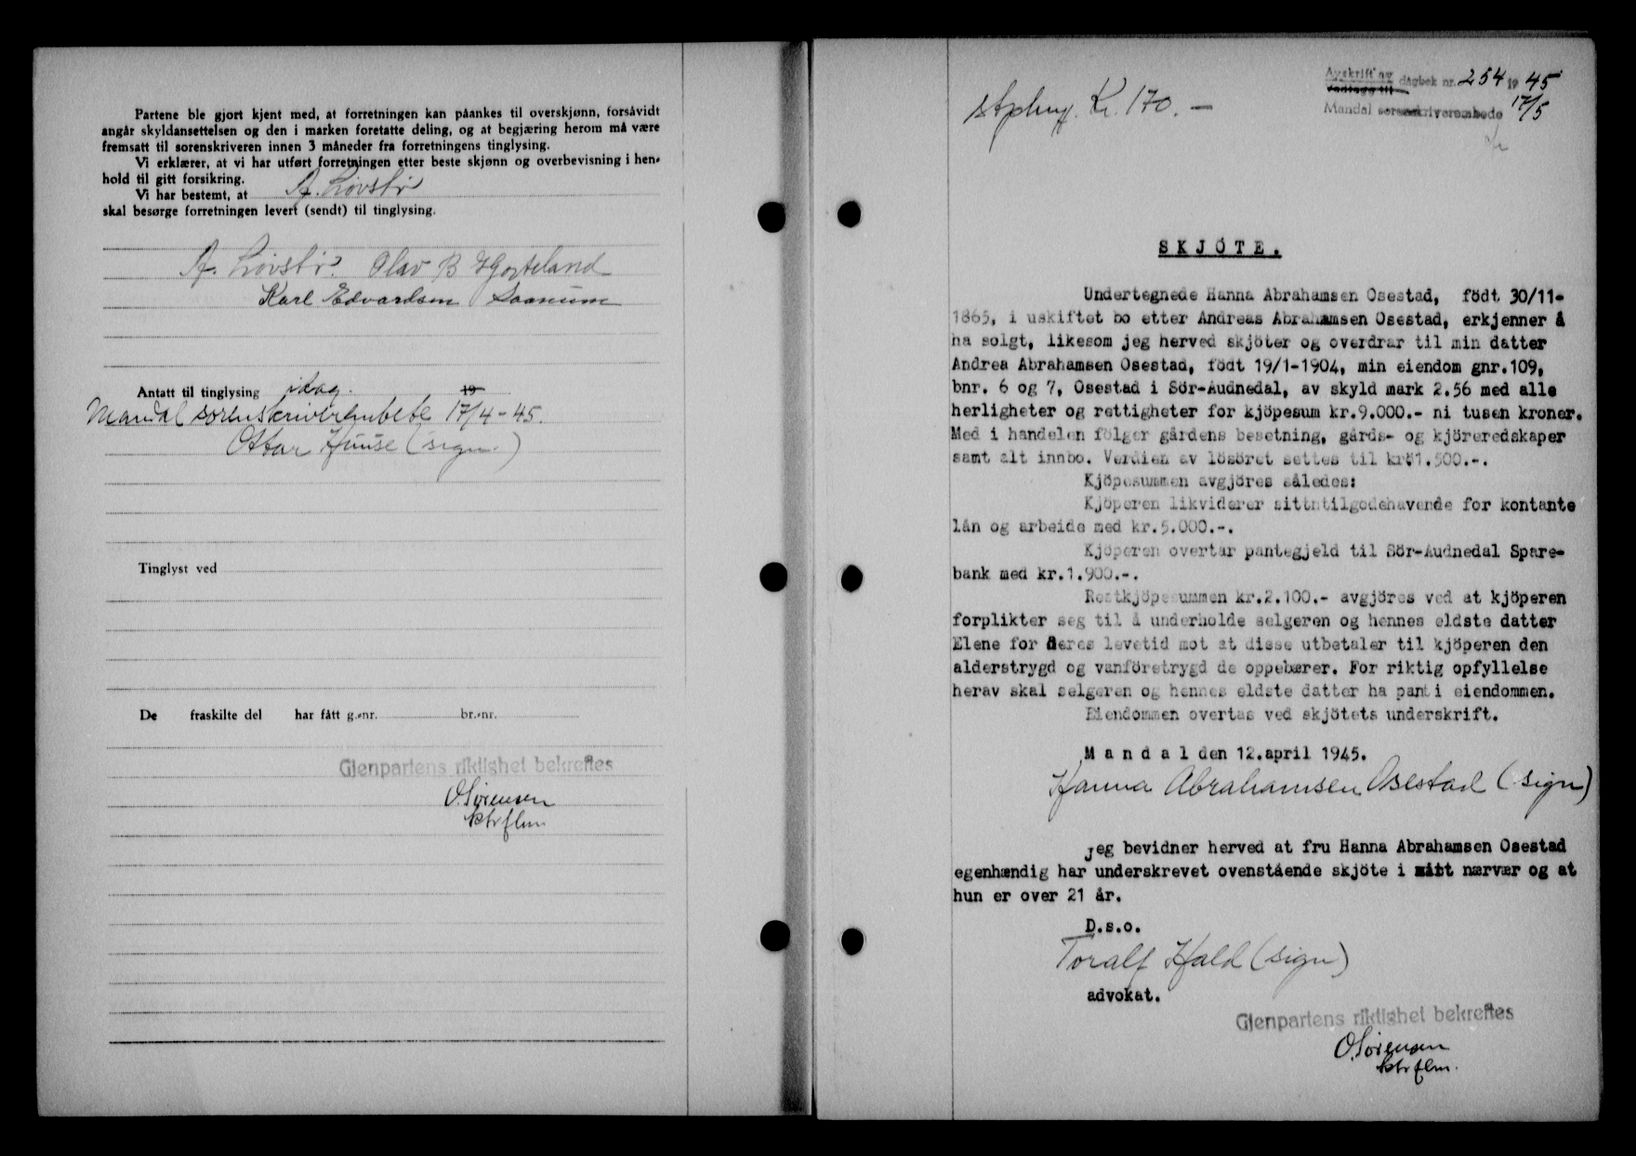 Partene ble gjort kjent med, at forretningen kan påankes til overskjønn, forsåvidt
angår skyldansettelsen og den i marken foretatte deling, og at begjæring herom må være
fremsatt til sorenskriveren innen 3 måneder fra forretningens tinglysing.
Vi erklærer, at vi har utført forretningen etter beste skjønn og overbevisning i hen-
hold til gitt forsikring.
Vi har bestemt, at A. Løvstø
skal besørge forretningen levert (sendt) til tinglysing.
A. Løvstø. Olav B Hjorteland
Karl Edvardsen Saanum
Antatt til tinglysing idag. 19
Mandal sorenskriverembete 17/4-45.
Ottar Huuse (sign.)
Tinglyst ved
De fraskilte del har fått g.-nr. br.-nr.
Gjenpartens riktighet bekreftes
O. Sørensen
ktrflm
Avskrift av dagbok nr. 254 1945
Mandal sorenskriverembede 17/5
Kr. 170.-
SKJÖTE.
Undertegnede Hanna Abrahamsen Osestad, födt 30/11-
1865, i uskiftet bo etter Andreas Abrahamsen Osestad, erkjenner å
ha solgt, likesom jeg herved skjöter og overdrar til min datter
Andrea Abrahamsen Osestad, födt 19/1-1904, min eiendom gnr.109,
bnr. 6 og 7, Osestad i Sör-Audnedal, av skyld mark 2.56 med alle
herligheter og rettigheter for kjöpesum kr.9.000.- ni tusen kroner.
Med i handelen fölger gårdens besetning, gårds- og kjöreredskaper
samt alt innbo. Verdien av lösöret settes til kr.1.500.-.
Kjöpesummen avgjöres således:
Kjöperen likviderer sitt tilgodehavende for kontante
lån og arbeide med kr.5.000.-.
Kjöperen overtar pantegjeld til Sör-Audnedal Spare-
bank med kr.1.900.-.
Restkjöpesummen kr.2.100.- avgjöres ved at kjöperen
forplikter seg til å underholde selgeren og hennes eldste datter
Elene for deres levetid mot at disse utbetaler til kjöperen den
alderstrygd og vanföretrygd de oppebærer. For riktig opfyllelse
herav skal selgeren og hennes eldste datter ha pant i eiendommen.
Eiendommen overtas ved skjötets underskrift.
M a n d a l den 12.april 1945.
Hanna Abrahamsen Osestad (sign)
Jeg bevidner herved at fru Hanna Abrahamsen Osestad
egenhændig har underskrevet ovenstående skjöte i mitt nærvær og at
hun er over 21 år.
D.s.o.
Toralf Hald (sign)
advokat.
Gjenpartens riktighet bekreftes
O. Sørensen
ktrflm.